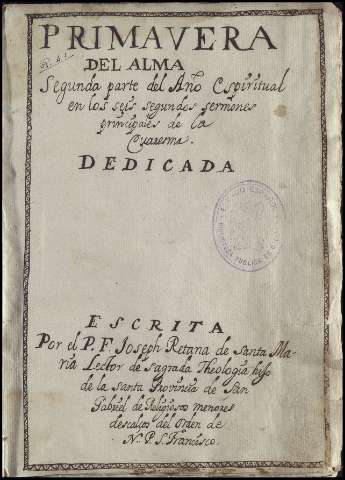 PRIMAVERA
DEL ALMA
Segunda parte del Año Espiritual
en los seis segundos sermones
principales de la
Cuaresma.
DEDICADA
ESCRITA
Por el P. F. Joseph Retana de Santa Ma-
ria Lector de Sagrada Theologia hijo
de la Santa Provincia de San
Gabriel de Religiosos menores
descalços del Orden de
N. P. S. Francisco.